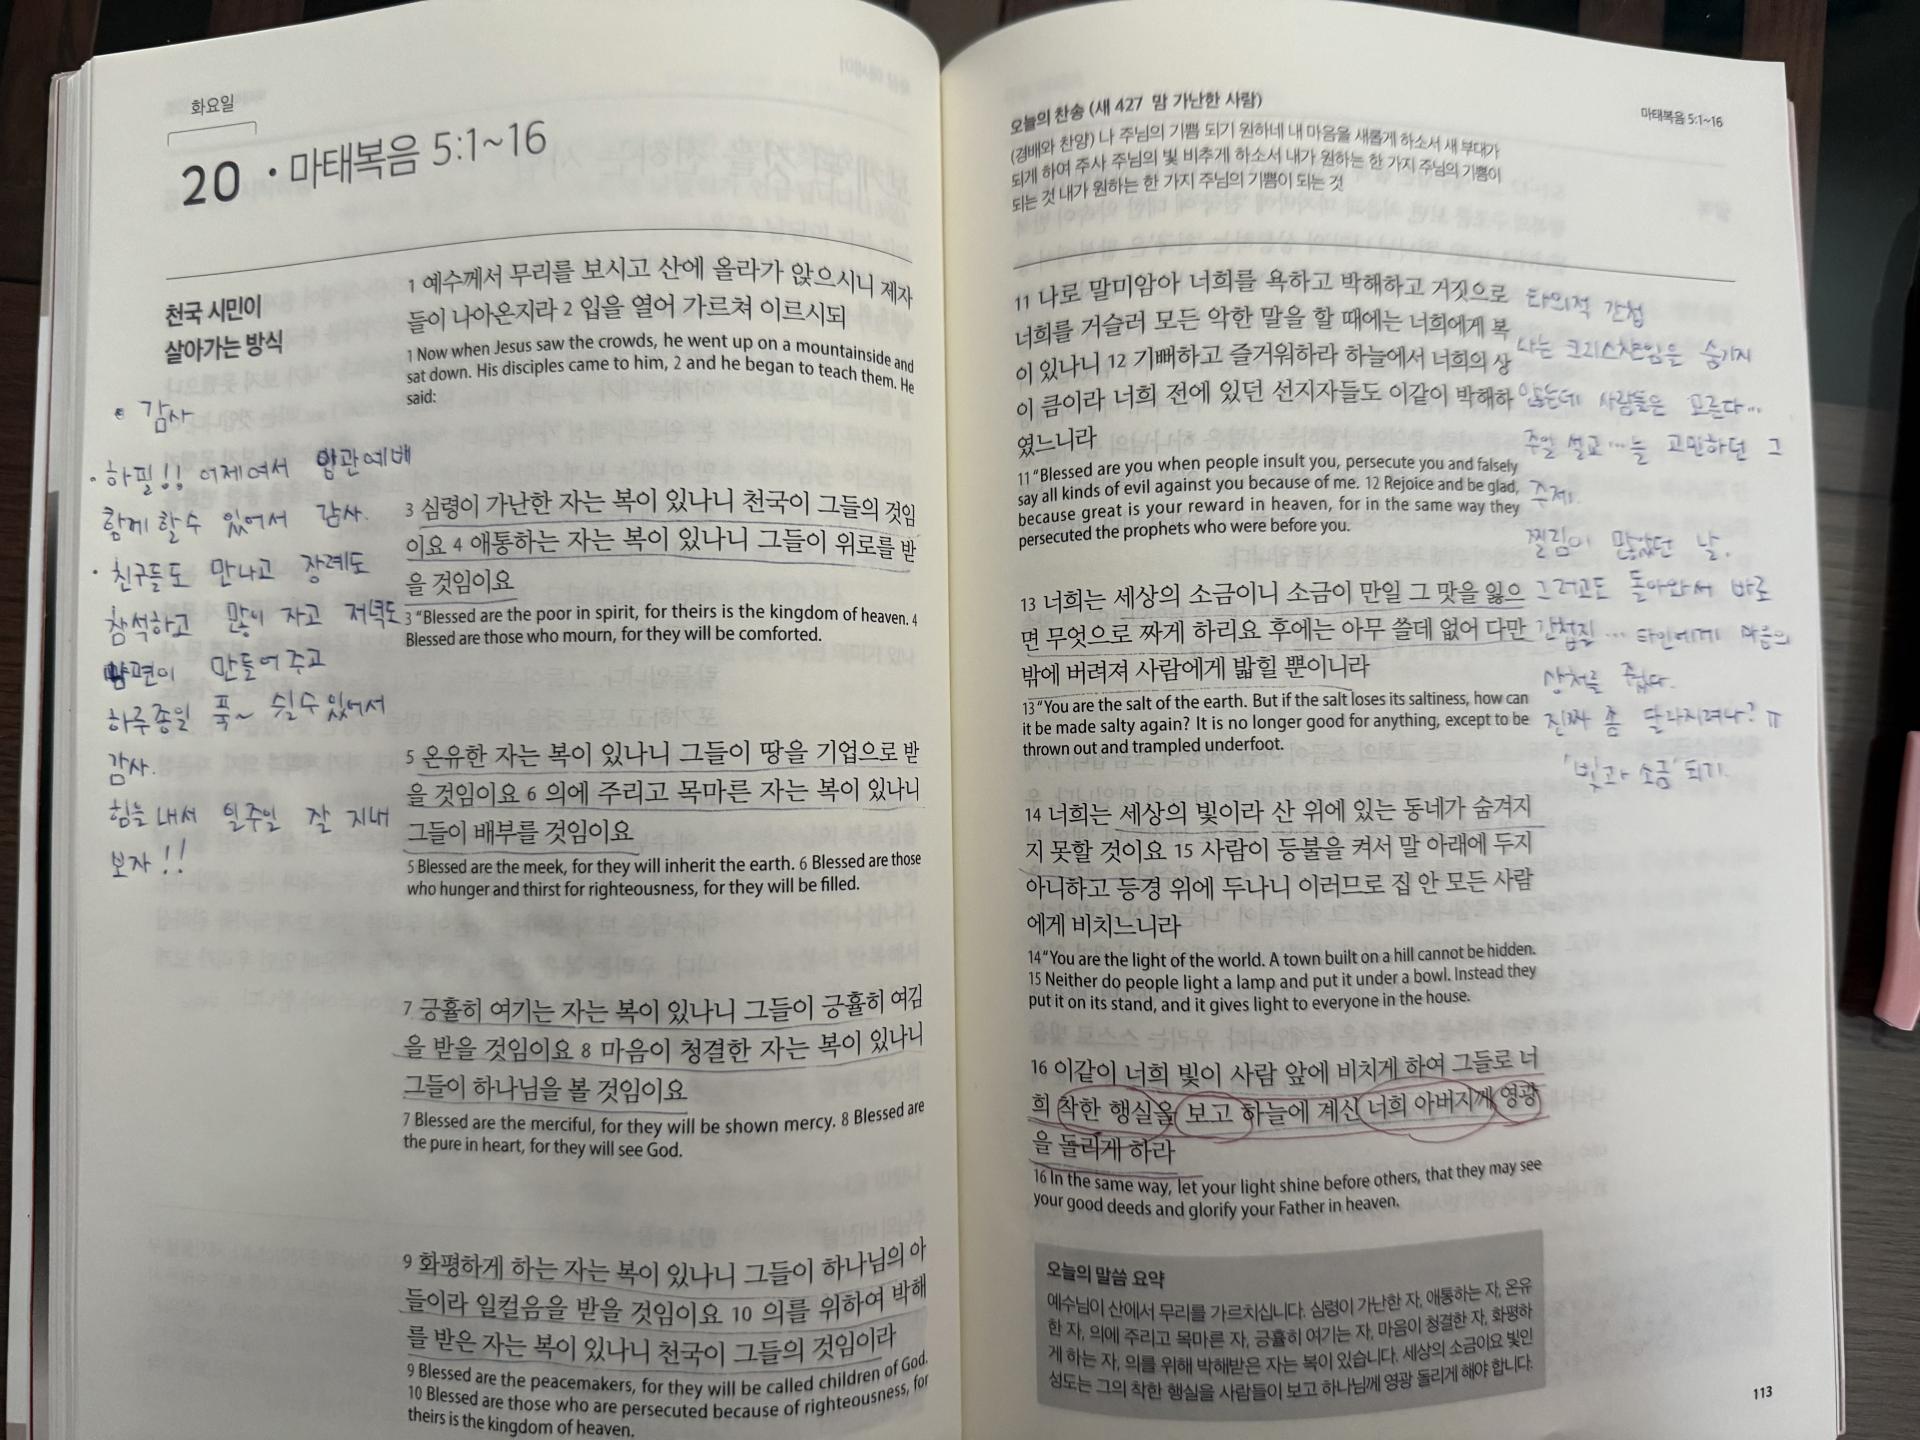 화요일
20 · 마태복음 5:1~16
천국 시민이
살아가는 방식
• 감사
· 하필!! 어제여서 입관예배
함께 할 수 있어서 감사.
· 친구들도 만나고 장례도
참석하고 많이 자고 저녁도
남편이 만들어주고
하루종일 푹~ 쉴 수 있어서
감사.
힘을 내서 일주일 잘 지내
보자!!
1 예수께서 무리를 보시고 산에 올라가 앉으시니 제자
들이 나아온지라 2 입을 열어 가르쳐 이르시되
1 Now when Jesus saw the crowds, he went up on a mountainside and
sat down. His disciples came to him, 2 and he began to teach them. He
said:
3 심령이 가난한 자는 복이 있나니 천국이 그들의 것임
이요 4 애통하는 자는 복이 있나니 그들이 위로를 받
을 것임이요
3 “Blessed are the poor in spirit, for theirs is the kingdom of heaven. 4
Blessed are those who mourn, for they will be comforted.
5 온유한 자는 복이 있나니 그들이 땅을 기업으로 받
을 것임이요 6 의에 주리고 목마른 자는 복이 있나니
그들이 배부를 것임이요
5 Blessed are the meek, for they will inherit the earth. 6 Blessed are those
who hunger and thirst for righteousness, for they will be filled.
7 긍휼히 여기는 자는 복이 있나니 그들이 긍휼히 여김
을 받을 것임이요 8 마음이 청결한 자는 복이 있나니
그들이 하나님을 볼 것임이요
7 Blessed are the merciful, for they will be shown mercy. 8 Blessed are
the pure in heart, for they will see God.
9 화평하게 하는 자는 복이 있나니 그들이 하나님의 아
들이라 일컬음을 받을 것임이요 10 의를 위하여 박해
를 받은 자는 복이 있나니 천국이 그들의 것임이라
9 Blessed are the peacemakers, for they will be called children of God.
10 Blessed are those who are persecuted because of righteousness, for
theirs is the kingdom of heaven.
오늘의 찬송 (새 427 맘 가난한 사람)
(경배와 찬양) 나 주님의 기쁨 되기 원하네 내 마음을 새롭게 하소서 새 부대가
되게 하여 주사 주님의 빛 비추게 하소서 내가 원하는 한 가지 주님의 기쁨이
되는 것 내가 원하는 한 가지 주님의 기쁨이 되는 것
마태복음 5:1~16
11 나로 말미암아 너희를 욕하고 박해하고 거짓으로
너희를 거슬러 모든 악한 말을 할 때에는 너희에게 복
이 있나니 12 기뻐하고 즐거워하라 하늘에서 너희의 상
이 큼이라 너희 전에 있던 선지자들도 이같이 박해하
였느니라
11 “Blessed are you when people insult you, persecute you and falsely
say all kinds of evil against you because of me. 12 Rejoice and be glad,
because great is your reward in heaven, for in the same way they
persecuted the prophets who were before you.
13 너희는 세상의 소금이니 소금이 만일 그 맛을 잃으
면 무엇으로 짜게 하리요 후에는 아무 쓸데 없어 다만
밖에 버려져 사람에게 밟힐 뿐이니라
13 “You are the salt of the earth. But if the salt loses its saltiness, how can
it be made salty again? It is no longer good for anything, except to be
thrown out and trampled underfoot.
14 너희는 세상의 빛이라 산 위에 있는 동네가 숨겨지
지 못할 것이요 15 사람이 등불을 켜서 말 아래에 두지
아니하고 등경 위에 두나니 이러므로 집 안 모든 사람
에게 비치느니라
14 “You are the light of the world. A town built on a hill cannot be hidden.
15 Neither do people light a lamp and put it under a bowl. Instead they
put it on its stand, and it gives light to everyone in the house.
16 이같이 너희 빛이 사람 앞에 비치게 하여 그들로 너
희 착한 행실을 보고 하늘에 계신 너희 아버지께 영광
을 돌리게 하라
16 In the same way, let your light shine before others, that they may see
your good deeds and glorify your Father in heaven.
타의적 간첩
나는 크리스찬임을 숨기지
않는데 사람들은 모른다...
주일 설교... 늘 고민하던 그
주제.
찔림이 많았던 날.
그러고도 돌아와서 바로
간첩질... 타인에게 마음의
상처를 줬다.
진짜 좀 달라지려나? ㅠ
'빛과 소금' 되기.
오늘의 말씀 요약
예수님이 산에서 무리를 가르치십니다. 심령이 가난한 자, 애통하는 자, 온유
한 자, 의에 주리고 목마른 자, 긍휼히 여기는 자, 마음이 청결한 자, 화평하
게 하는 자, 의를 위해 박해받은 자는 복이 있습니다. 세상의 소금이요 빛인
성도는 그의 착한 행실을 사람들이 보고 하나님께 영광 돌리게 해야 합니다.
113